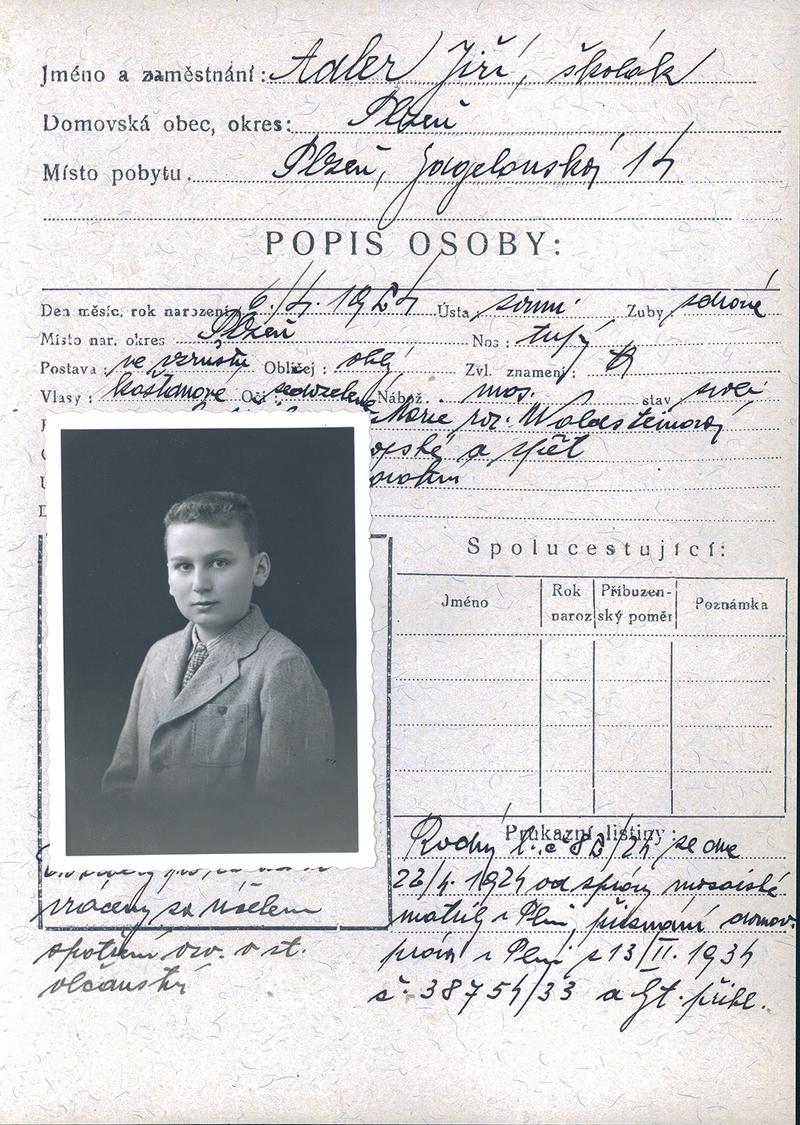 Jméno a zaměstnání: Adler Jiří, školák
Domovská obec, okres: Plzeň
Místo pobytu. Plzeň, Jagelonská 14
POPIS OSOBY:
Den měsíc, rok narození 6./4. 1924 Ústa soum. Zuby zdravé
Místo nar. okres Plzeň Nos: tupý
Postava: ve vzrůstu Obličej: oblý Zvl. znamení:
Vlasy: kaštanové Oči: šedozelené Nábož. mos. stav svob.
Marie roz. Waldsteinová
a zpět
Spolucestující:
Jméno Rok naroz Příbuzenský poměr Poznámka
Průkazní listiny:
Rodný l. č. 82/24 ze dne
22/4. 1924 od správy mosaiské
matriky v Plzni, přiznání domov.
práva v Plzni z 13/II. 1934
č. 38754/33 a přihl.
vráceny za účelem
osv. o st.
občanství